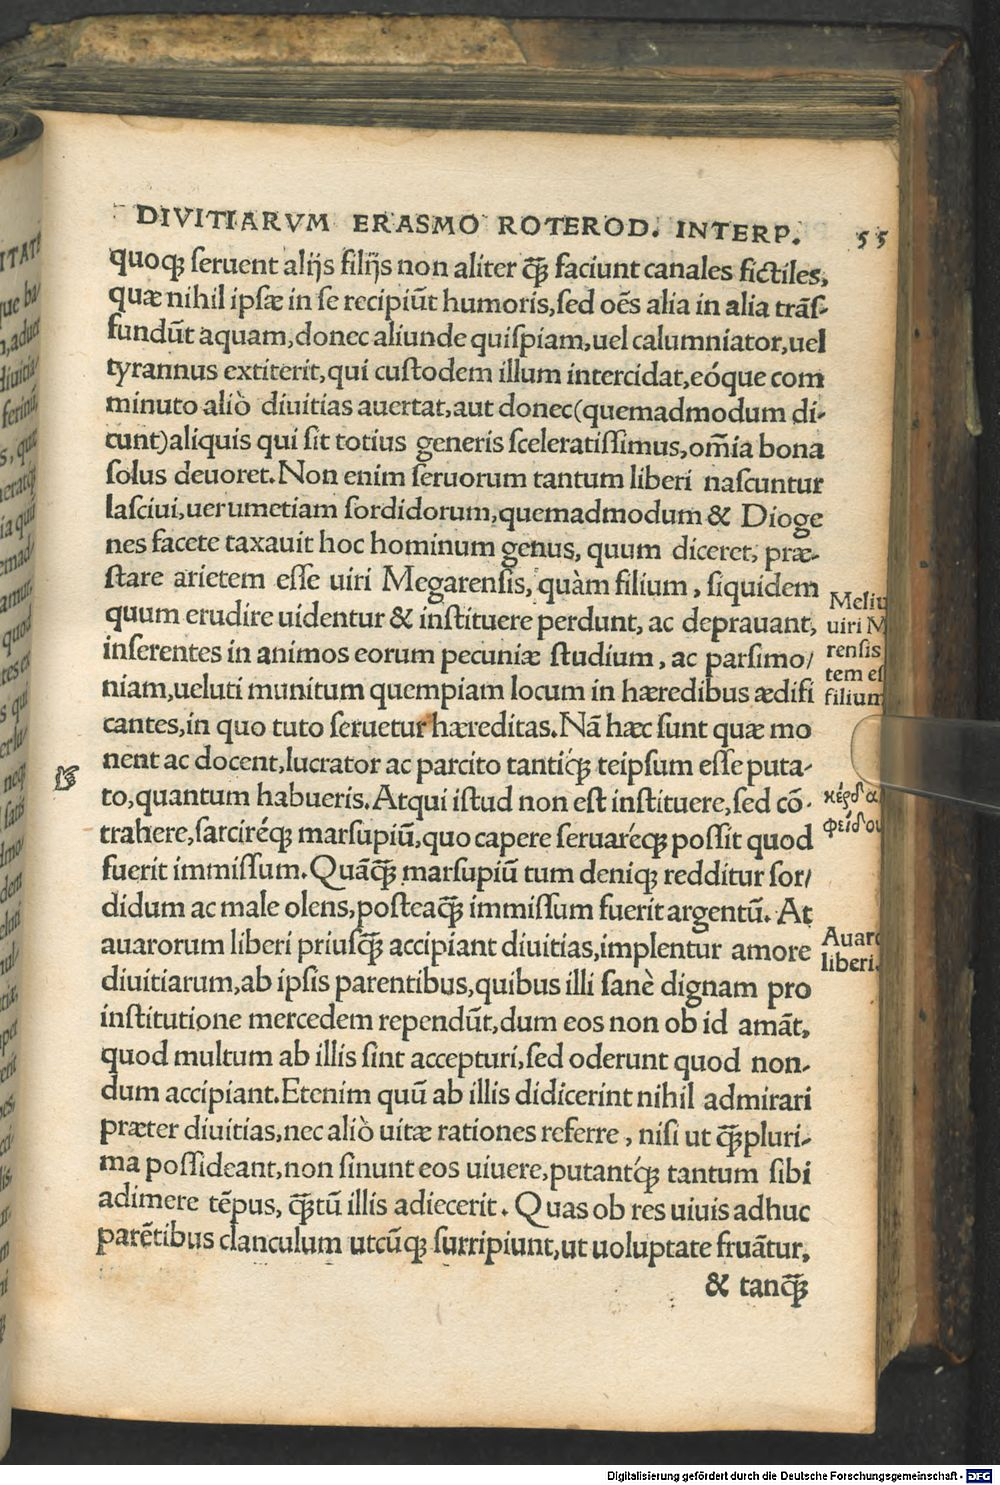 DIVITIARVM ERASMO ROTEROD. INTERP. 55
quoqꝫ ſeruent alijs filijs non aliter q̃ꝫ faciunt canales fictiles,
quæ nihil ipſæ in ſe recipiũt humoris,ſed oẽs alia in alia trãſ-
fundũt aquam,donec aliunde quiſpiam,uel calumniator,uel
tyrannus extiterit,qui cuſtodem illum intercidat,eóque com
minuto aliò diuitias auertat,aut donec(quemadmodum di-
cunt)aliquis qui ſit totius generis ſceleratiſſimus,om̃ia bona
ſolus deuoret.Non enim ſeruorum tantum liberi naſcuntur
laſciui,uerumetiam ſordidorum,quemadmodum & Dioge
nes facete taxauit hoc hominum genus, quum diceret, præ-
ſtare arietem eſſe uiri Megarenſis, quàm filium, ſiquidem
quum erudire uidentur & inſtituere perdunt, ac deprauant,
inſerentes in animos eorum pecuniæ ſtudium, ac parſimo/
niam,ueluti munitum quempiam locum in hæredibus ædifi
cantes,in quo tuto ſeruetur hæreditas.Nã hæc ſunt quæ mo
nent ac docent,lucrator ac parcito tantiq́ꝫ teipſum eſſe puta-
to,quantum habueris.Atqui iſtud non eſt inſtituere,ſed cõ-
trahere,ſarciréqꝫ marſupiũ,quo capere ſeruaréqꝫ poſſit quod
fuerit immiſſum.Quãq̃ꝫ marſupiũ tum deniqꝫ redditur ſor/
didum ac male olens,poſteaq̃ꝫ immiſſum fuerit argentũ. At
auarorum liberi priuſq̃ꝫ accipiant diuitias,implentur amore
diuitiarum,ab ipſis parentibus,quibus illi ſanè dignam pro
inſtitutione mercedem rependũt,dum eos non ob id amãt,
quod multum ab illis ſint accepturi,ſed oderunt quod non-
dum accipiant.Etenim quũ ab illis didicerint nihil admirari
præter diuitias,nec aliò uitæ rationes referre, niſi ut q̃ꝫpluri-
ma poſſideant,non ſinunt eos uiuere,putantq́ꝫ tantum ſibi
adimere tẽpus, q̃ꝫtũ illis adiecerit. Quas ob res uiuis adhuc
parẽtibus clanculum utcũqꝫ ſurripiunt,ut uoluptate fruãtur,
& tanq̃ꝫ
Meliu
uiri M
renſis
tem eſ
filium
κέρδα
φείδου
Auaro
liberi.
Digitalisierung gefördert durch die Deutsche Forschungsgemeinschaft - DFG